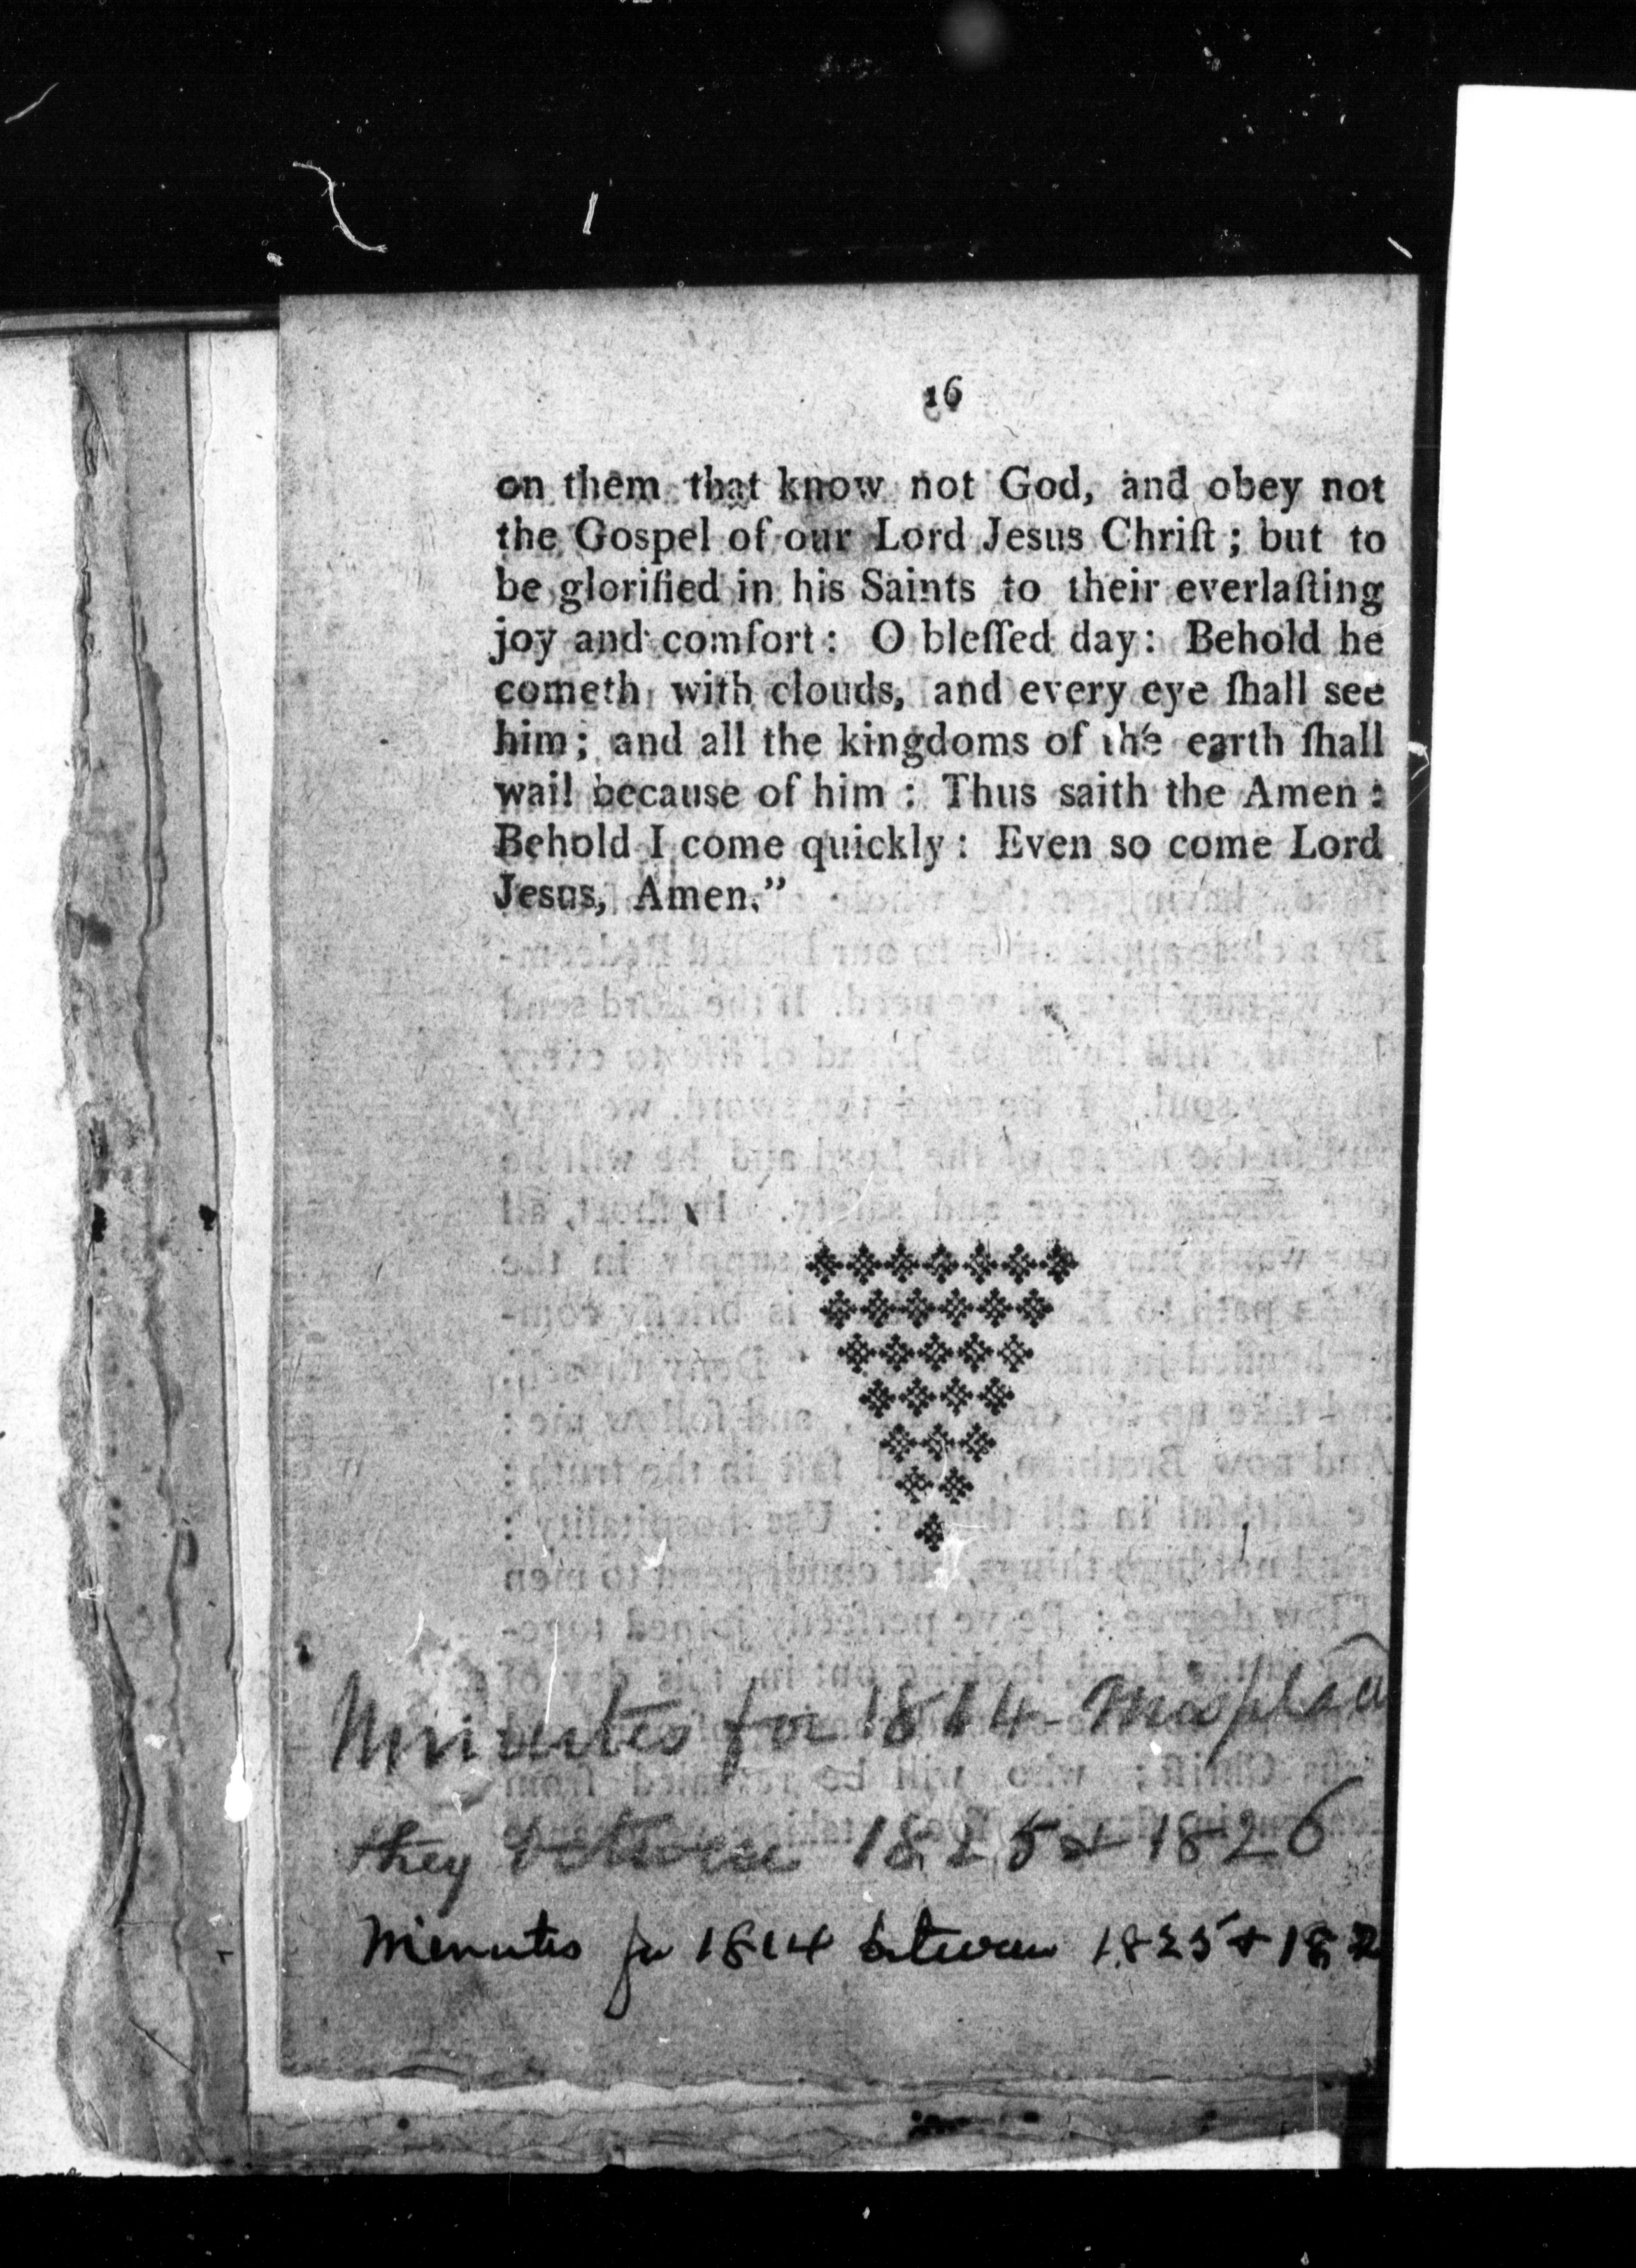 16
on them that know not God, and obey not
the Gospel of our Lord Jesus Chriſt; but to
be glorified in his Saints to their everlaſting
joy and comfort: O bleſſed day: Behold he
cometh with clouds, and every eye ſhall see
him; and all the kingdoms of the earth ſhall
wail because of him: Thus saith the Amen:
Behold I come quickly: Even so come Lord
Jesus, Amen."
Minutes for 1814
they between 1825 & 1826
Minutes for 1814 between 1825 & 182